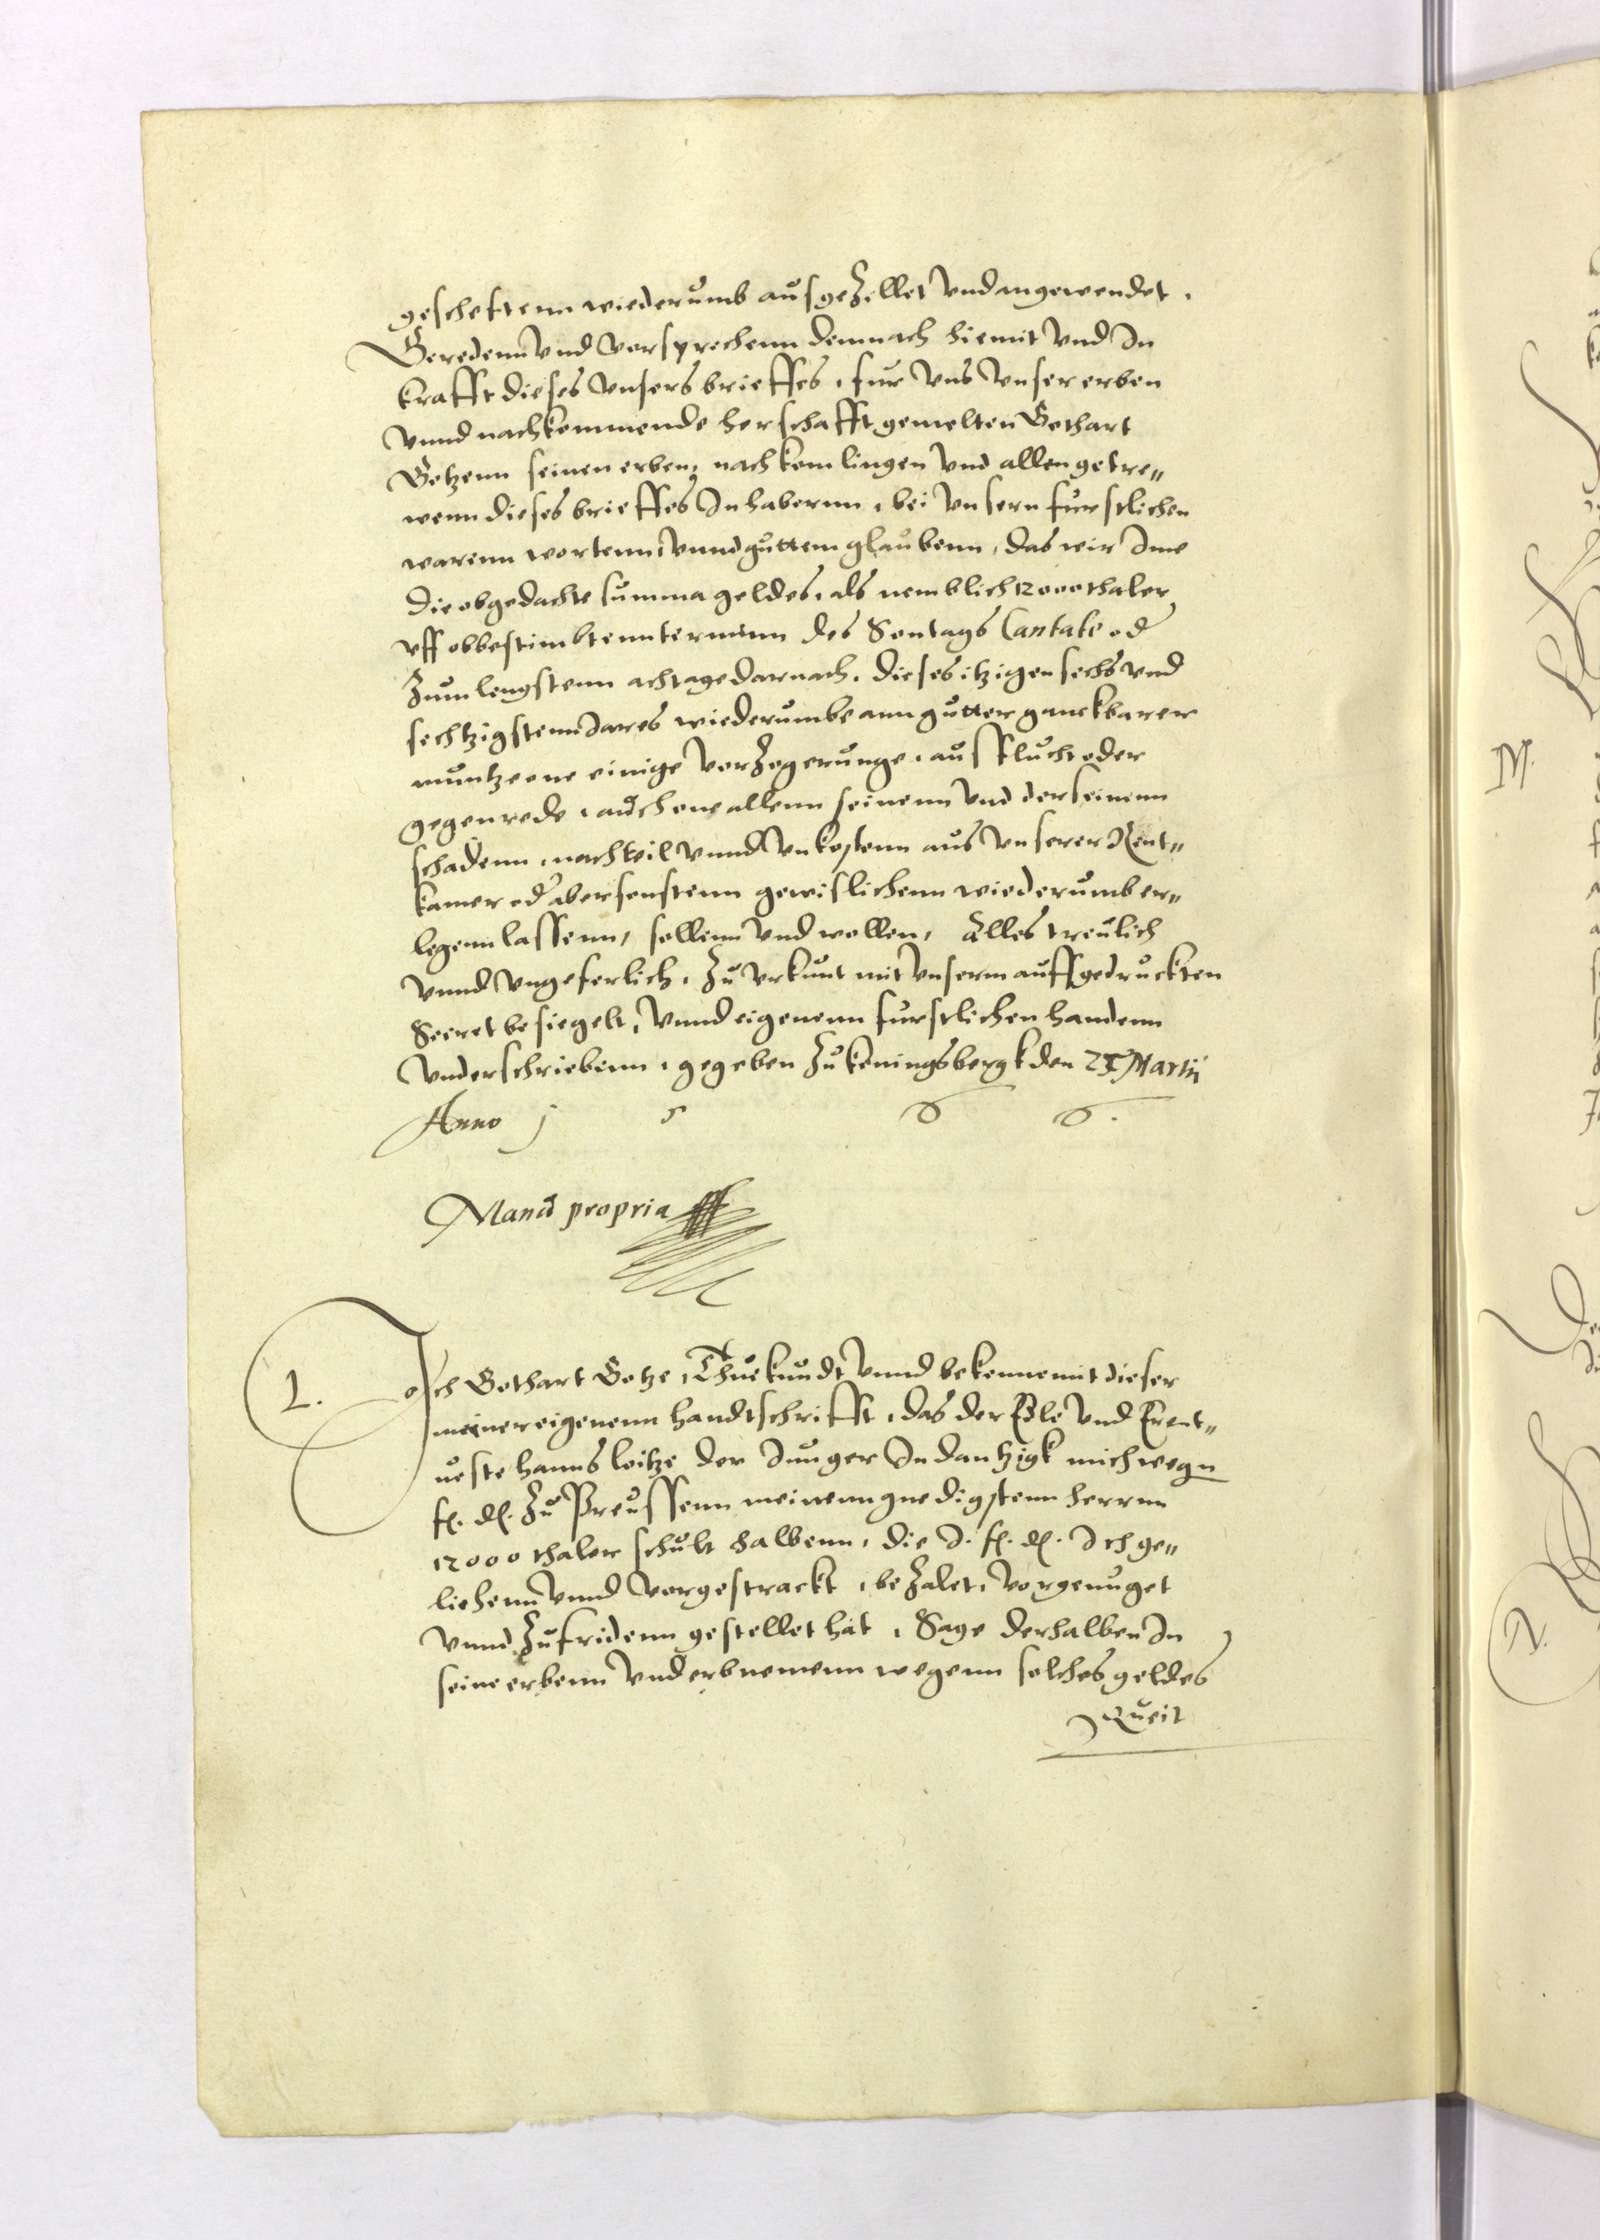 gescheftenn wiederumb ausgezellet vnd angewendet.
Geredenn vnd vorsprechenn demnach hiemit vnd In
krafft dieses vnsers brieffes, fur vns vnser erben
vnnd nachkommende herschafft gemelten Gothart
Gotzenn seinen erben, nachkomlingen vnd allen getre„
wenn dieses brieffes Inhabernn, bei vnsern furstlichen
warenn wortenn, vnnd guttem glaubenn, das wir Ime
die obgedachte summa geldes, als nemblich 12000 thaler
vff obbestimbtenn termin des Sontags Cantate od
Zum lengstenn acht age darnach, dieses itzigen sechs vnd
sechtzigstenn Jares wiederumbe ann gutter ganckbarer
muntze one einige vorzogerunge, ausflucht oder
gegenrede, auch one allenn seinenn vnd der seinenn
schadenn, nachteil vnnd vnkostenn aus vnserer Rent„
kamer od aber sonstenn gewislichenn wiederumb er„
legenn lassenn, sollenn vnd wollen, Alles treulich
vnnd vngeferlich, Zu vrkunt mit vnserm auffgedruckten
Secret besiegelt, vnnd eigenenn furstlichen handenn
vnderschriebenn, gegeben Zu koningsbergk den 21 Martii
Anno 1 5 6 6.
Manu propria
L. Ich Gothart Gotze, Thue kundt vnnd bekenne mit dieser
meiner eigenenn handtschrifft, das der Edle vnd Ernt„
ueste hanns loitze der Junger In dantzigk mich wegn
fl. dl. Zu Preussenn meinenn gnedigstenn herrnn
12000 thaler schult halbenn, die I. fl. dl. Ich ge„
liehenn vnnd vorgestrackt, bezalet, vorgenuget
vnnd Zufridenn gestellet hat, Sage derhalben In
seine erbenn vnd erbnemenn wegenn solches geldes
Queit
M.
N.